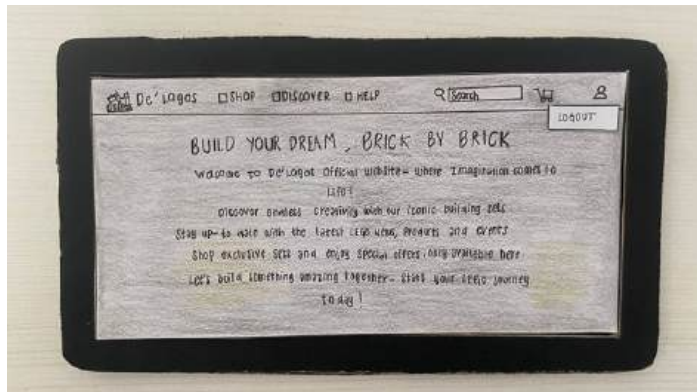 De' Lagos SHOP DISCOVER HELP Search
LOGOUT
BUILD YOUR DREAM, BRICK BY BRICK
Welcome to De'Lagos Official Website - where Imagination comes to
Life!
Discover endless creativity with our iconic building sets
Stay up-to date with the latest LEGO news, Products and events
Shop exclusive sets and enjoy special offers, only available here
Let's build something amazing together - Start your LEGO journey
today!